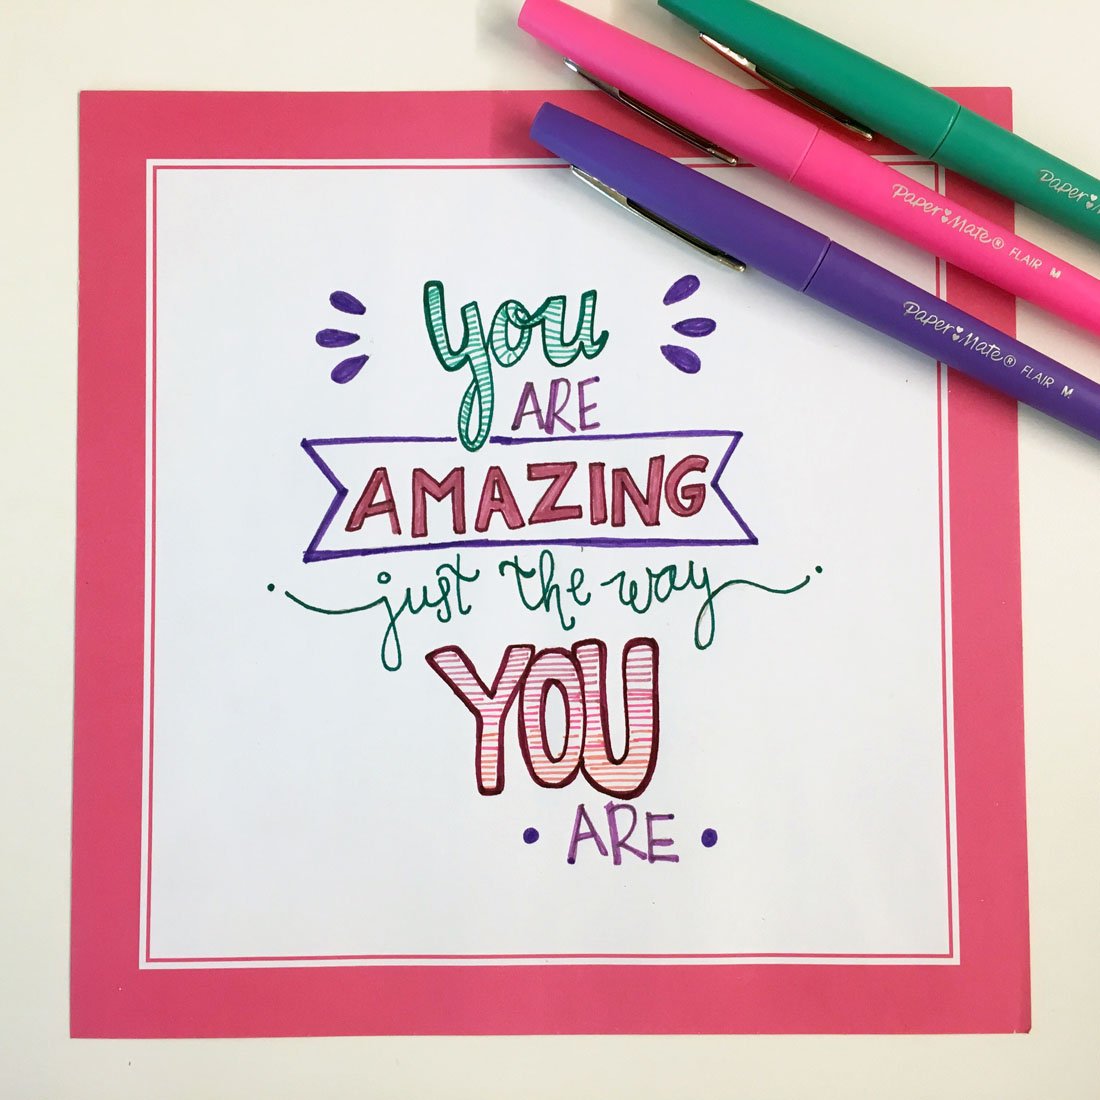 you
ARE
AMAZING
just the way
YOU
ARE
Paper Mate® FLAIR M
Paper Mate® FLAIR M
Paper Mate